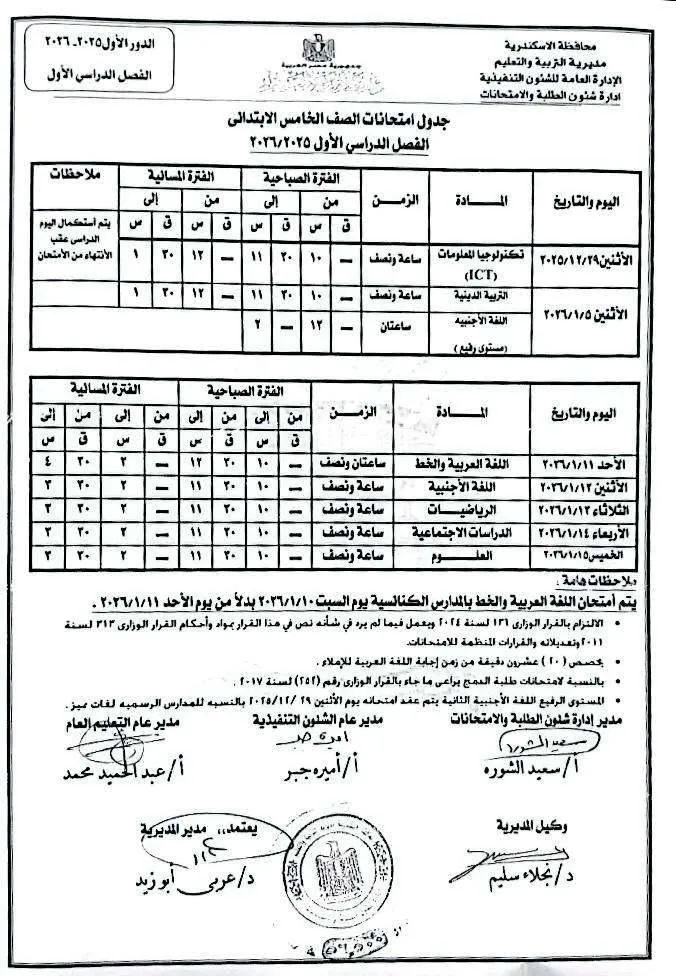 محافظة الاسكندرية
مديرية التربية والتعليم
الإدارة العامة للشئون التنفيذية
ادارة شئون الطلبة والامتحانات
جمهورية مصر العربية
الدور الأول ٢٠٢٥ـ ٢٠٢٦
الفصل الدراسي الأول
جدول امتحانات الصف الخامس الابتدائى
الفصل الدراسي الأول ٢٠٢٦/٢٠٢٥
اليوم والتاريخ المـــادة الزمـن الفترة الصباحية الفترة المسائية ملاحظات
من إلى من إلى
ق س ق س ق س ق س
الأثنين ٢٠٢٥/١٢/٢٩ تكنولوجيا المعلومات (ICT) ساعة ونصف — ١٠ ٣٠ ١١ — ١٢ ٣٠ ١ يتم أستكمال اليوم الدراسى عقب الأنتهاء من الأمتحان
الأثنين ٢٠٢٦/١/٥ التربية الدينية ساعة ونصف — ١٠ ٣٠ ١١ — ١٢ ٣٠ ١
اللغة الأجنبيه (مستوى رفيع) ساعتان — ١٢ — ٢
اليوم والتاريخ المـــادة الزمـن الفترة الصباحية الفترة المسائية
من إلى من إلى من إلى
ق س ق س ق س ق س
الأحد ٢٠٢٦/١/١١ اللغة العربية والخط ساعتان ونصف — ١٠ ٣٠ ١٢ — ٢ ٣٠ ٤
الأثنين ٢٠٢٦/١/١٢ اللغة الأجنبية ساعة ونصف — ١٠ ٣٠ ١١ — ٢ ٣٠ ٣
الثلاثاء ٢٠٢٦/١/١٣ الرياضيـــات ساعة ونصف — ١٠ ٣٠ ١١ — ٢ ٣٠ ٣
الأربعاء ٢٠٢٦/١/١٤ الدراسات الاجتماعية ساعة ونصف — ١٠ ٣٠ ١١ — ٢ ٣٠ ٣
الخميس ٢٠٢٦/١/١٥ العلـــوم ساعة ونصف — ١٠ ٣٠ ١١ — ٢ ٣٠ ٣
ملاحظات هامة :
يتم أمتحان اللغة العربية والخط بالمدارس الكنائسية يوم السبت ٢٠٢٦/١/١٠ بدلاً من يوم الأحد ٢٠٢٦/١/١١ .
• الالتزام بالقرار الوزارى ١٣٦ لسنة ٢٠٢٤ ويعمل فيما لم يرد في شأنه نص في هذا القرار بمواد وأحكام القرار الوزارى ٣١٣ لسنة
٢٠١١ وتعديلاته والقرارات المنظمة للامتحانات.
• يخصص (٢٠) عشرون دقيقة من زمن إجابة اللغة العربية للإملاء .
• بالنسبة لامتحانات طلبة الدمج يراعى ما جاء بالقرار الوزارى رقم (٢٥٢) لسنة ٢٠١٧ .
• المستوى الرفيع اللغة الأجنبية الثانية يتم عقد امتحانه يوم الأثنين ٢٩ /٢٠٢٥/١٢ بالنسبه للمدارس الرسميه لغات ميز .
مدير إدارة شئون الطلبة والامتحانات مدير عام الشئون التنفيذية مدير عام التعليم العام
سعيد الشوره
أ/ سعيد الشوره أ/ أميره جبر أ/ عبد الحميد محمد
وكيل المديرية يعتمد،، مدير المديرية
د/ نجلاء سليم د/ عربى أبو زيد